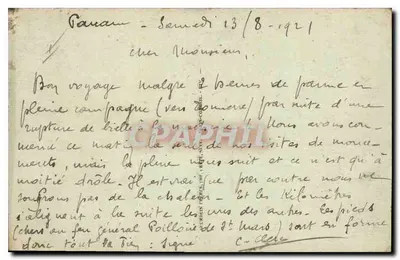 Paname - Samedi 13/8-1921
cher Monsieur,
Bon voyage malgré 2 heures de panne en
pleine campagne (vers ) par suite d'une
rupture de bielle Nous avons com-
mencé ce matin la série de nos visites de monu-
ments, mais la pluie nous suit et ce n'est qu'à
moitié drôle. Il est vrai que par contre nous ne
souffrons pas de la chaleur. Et les Kilomètres
s'alignent à la suite les uns des autres. Les pieds
(chers au feu général Poilloüe de St mars) sont en forme
donc tout va bien: Signé
CPAPHIL